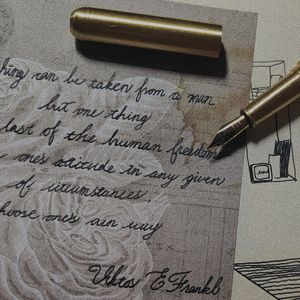 hing can be taken from a man
but one thing
last of the human freedom
one's attitude in any given
of circumstances,
hoose one's own way
Viktor E Frankl